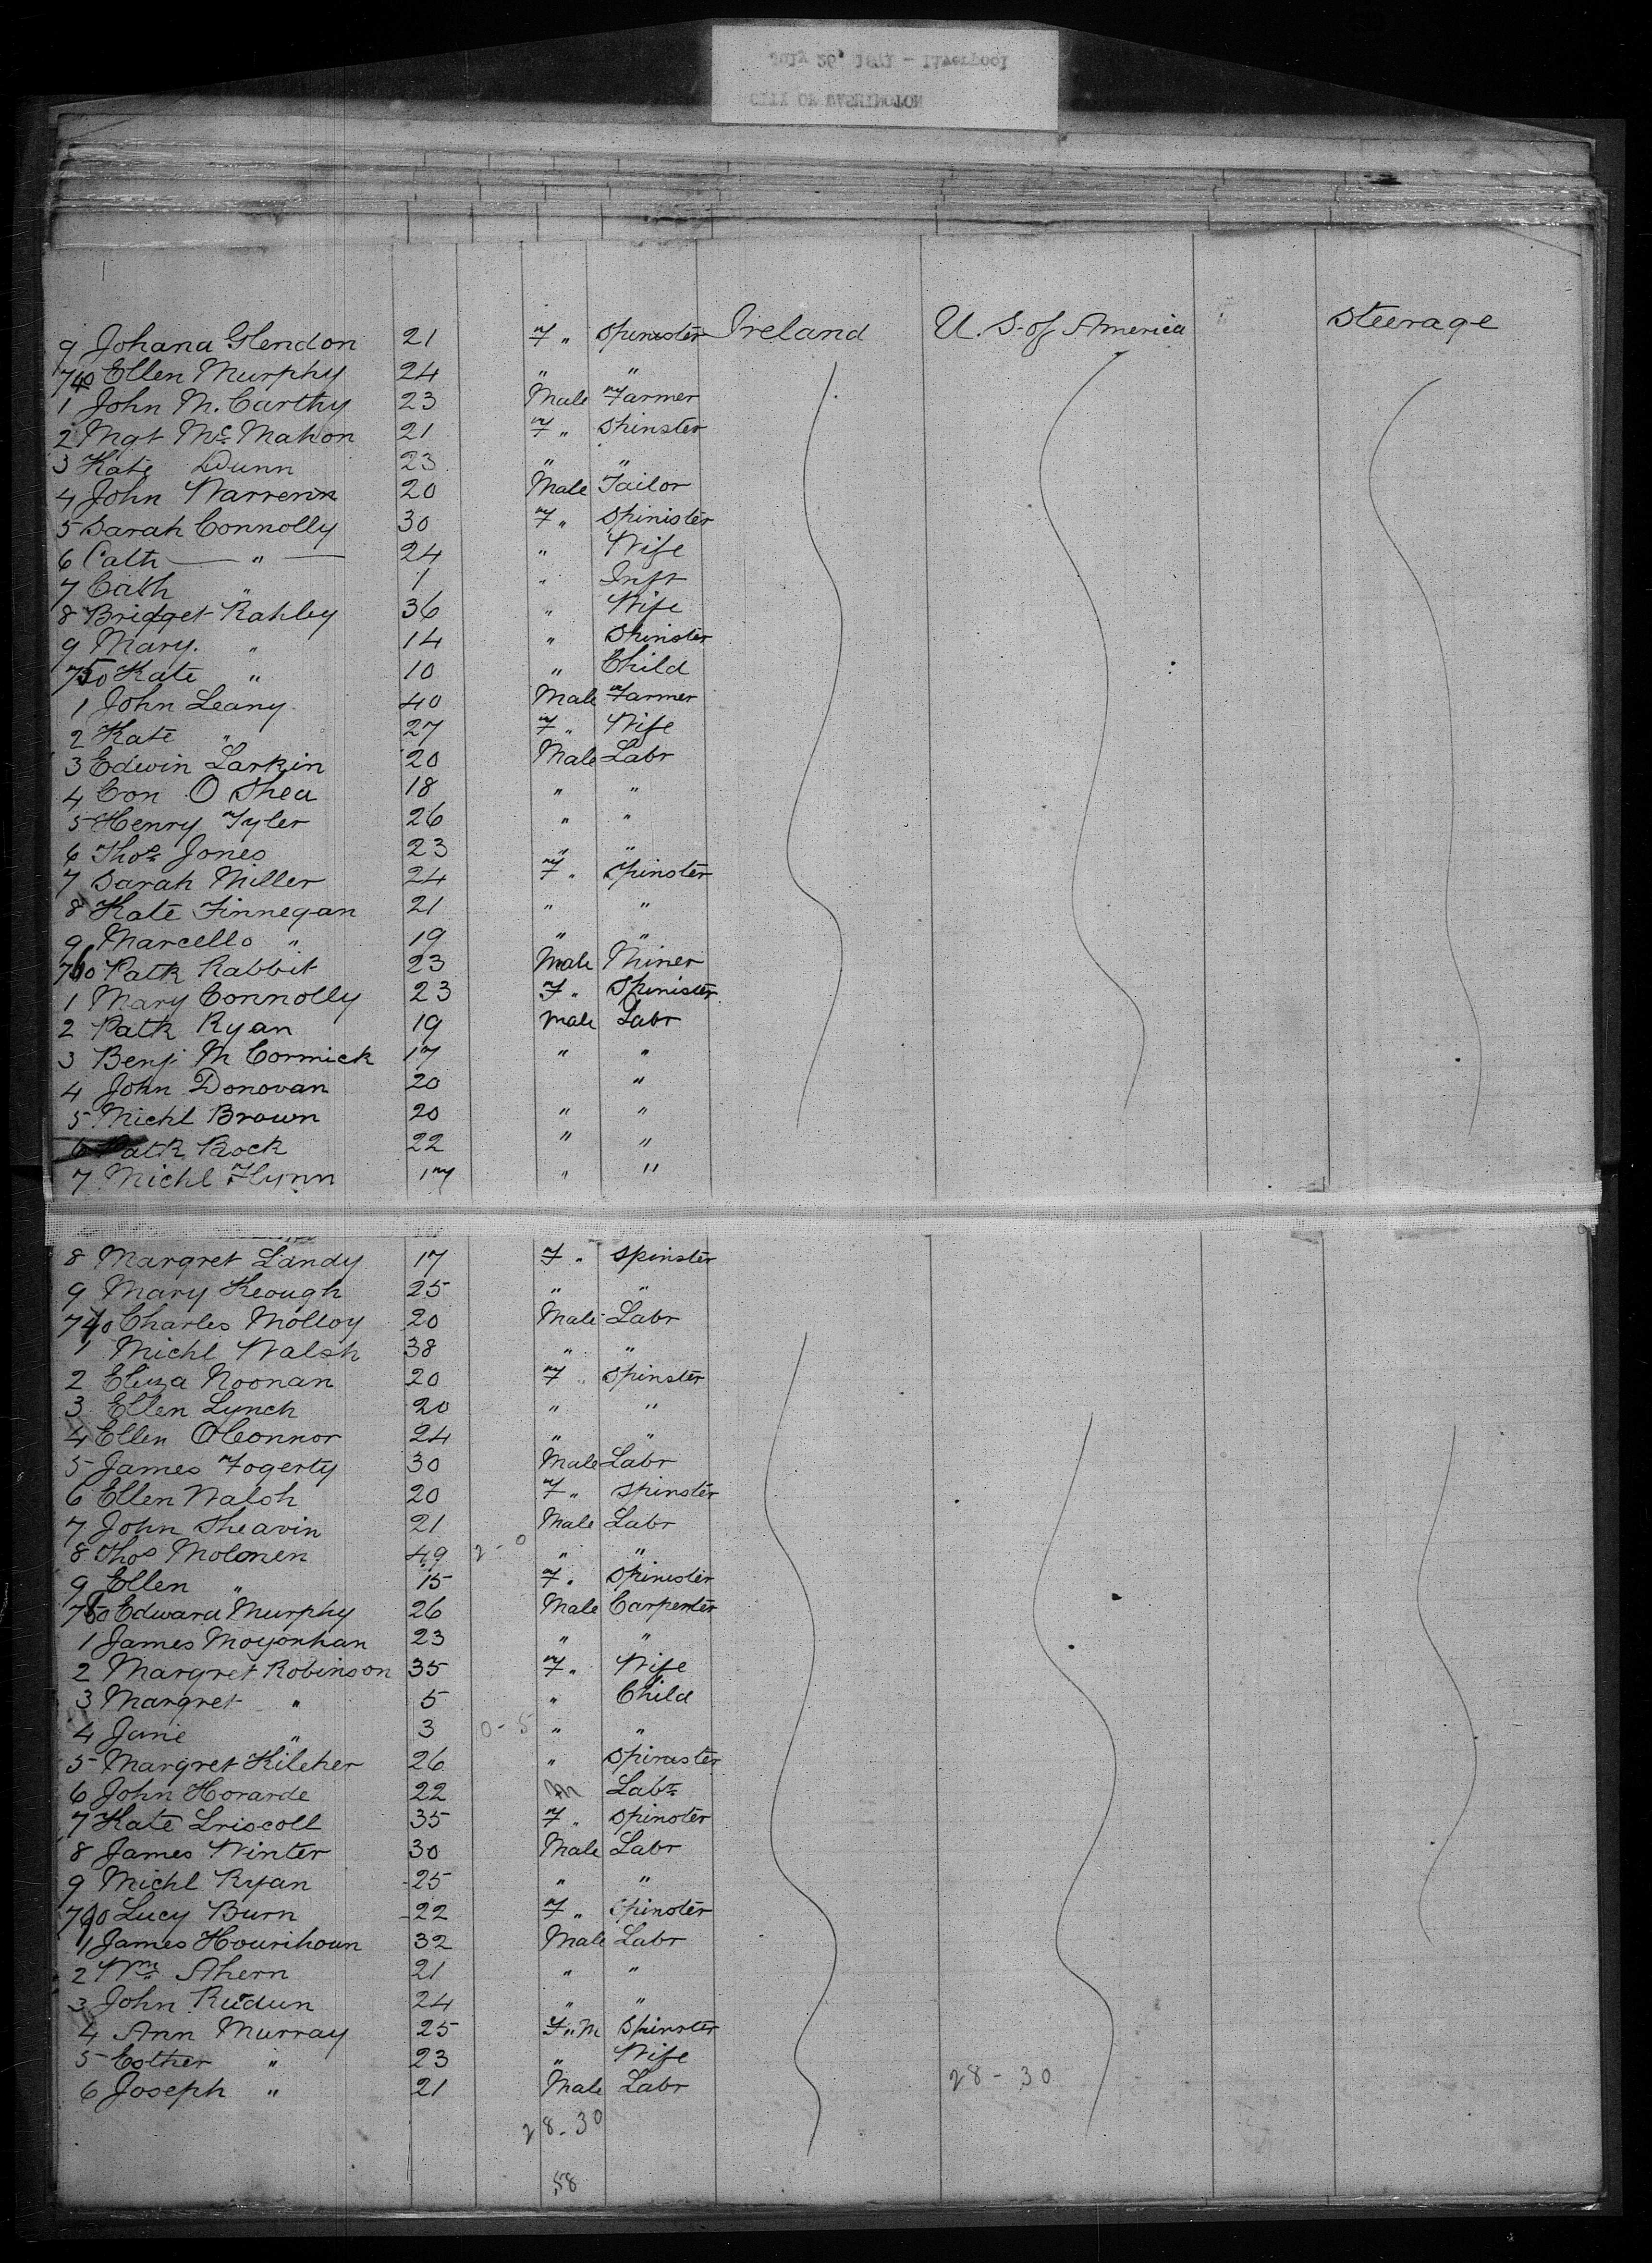 CITY OF WASHINGTON
July 26, 1871 - Liverpool
9 Johana Glendon 21 F " Spinster Ireland U. S. of America Steerage
740 Ellen Murphy 24 " "
1 John M. Carthy 23 Male Farmer
2 Mgt Mc Mahon 21 F " Spinster
3 Kate Dunn 23 " "
4 John Warren 20 Male Tailor
5 Sarah Connolly 30 F " Spinister
6 Cath " 24 " Wife
7 Cath " 1 " Inft
8 Bridget Rahley 36 " Wife
9 Mary. " 14 " Spinster
750 Kate " 10 " Child
1 John Leany 40 Male Farmer
2 Kate " 27 F " Wife
3 Edwin Larkin 20 Male Labr
4 Con O Shea 18 " "
5 Henry Tyler 26 " "
6 Thos Jones 23 " "
7 Sarah Miller 24 F " Spinster
8 Kate Finnegan 21 " "
9 Marcello " 19 " "
760 Patk Rabbit 23 Male Miner
1 Mary Connolly 23 F " Spinister
2 Patk Ryan 19 Male Labr
3 Benj. M Cormick 17 " "
4 John Donovan 20 "
5 Michl Brown 20 " "
6 Patk Rock 22 " "
7 Michl Flynn 17 " "
8 Margret Landy 17 F " Spinster
9 Mary Keough 25 " "
740 Charles Molloy 20 Male Labr
1 Michl Walsh 38 " "
2 Eliza Noonan 20 F " Spinster
3 Ellen Lynch 20 " "
4 Ellen OConnor 24 " "
5 James Fogerty 30 Male Labr
6 Ellen Walsh 20 F " Spinster
7 John Sheavin 21 Male Labr
8 Thos Molonen 49 2-0 " "
9 Ellen " 15 F " Spinister
780 Edward Murphy 26 Male Carpenter
1 James Moyonhan 23 " "
2 Margret Robinson 35 F " Wife
3 Margret " 5 " Child
4 Jane " 3 0-5 " "
5 Margret Kileher 26 " Spinster
6 John Horarde 22 M Labr
7 Kate Driscoll 35 F " Spinster
8 James Winter 30 Male Labr
9 Michl Ryan 25 " "
790 Lucy Burn 22 F " Spinster
1 James Hourihoun 32 Male Labr
2 Wm Ahern 21 " "
3 John Rudun 24 " "
4 Ann Murray 25 F " M Spinster
5 Esther " 23 " Wife
6 Joseph " 21 Male Labr 28-30
28-30
58